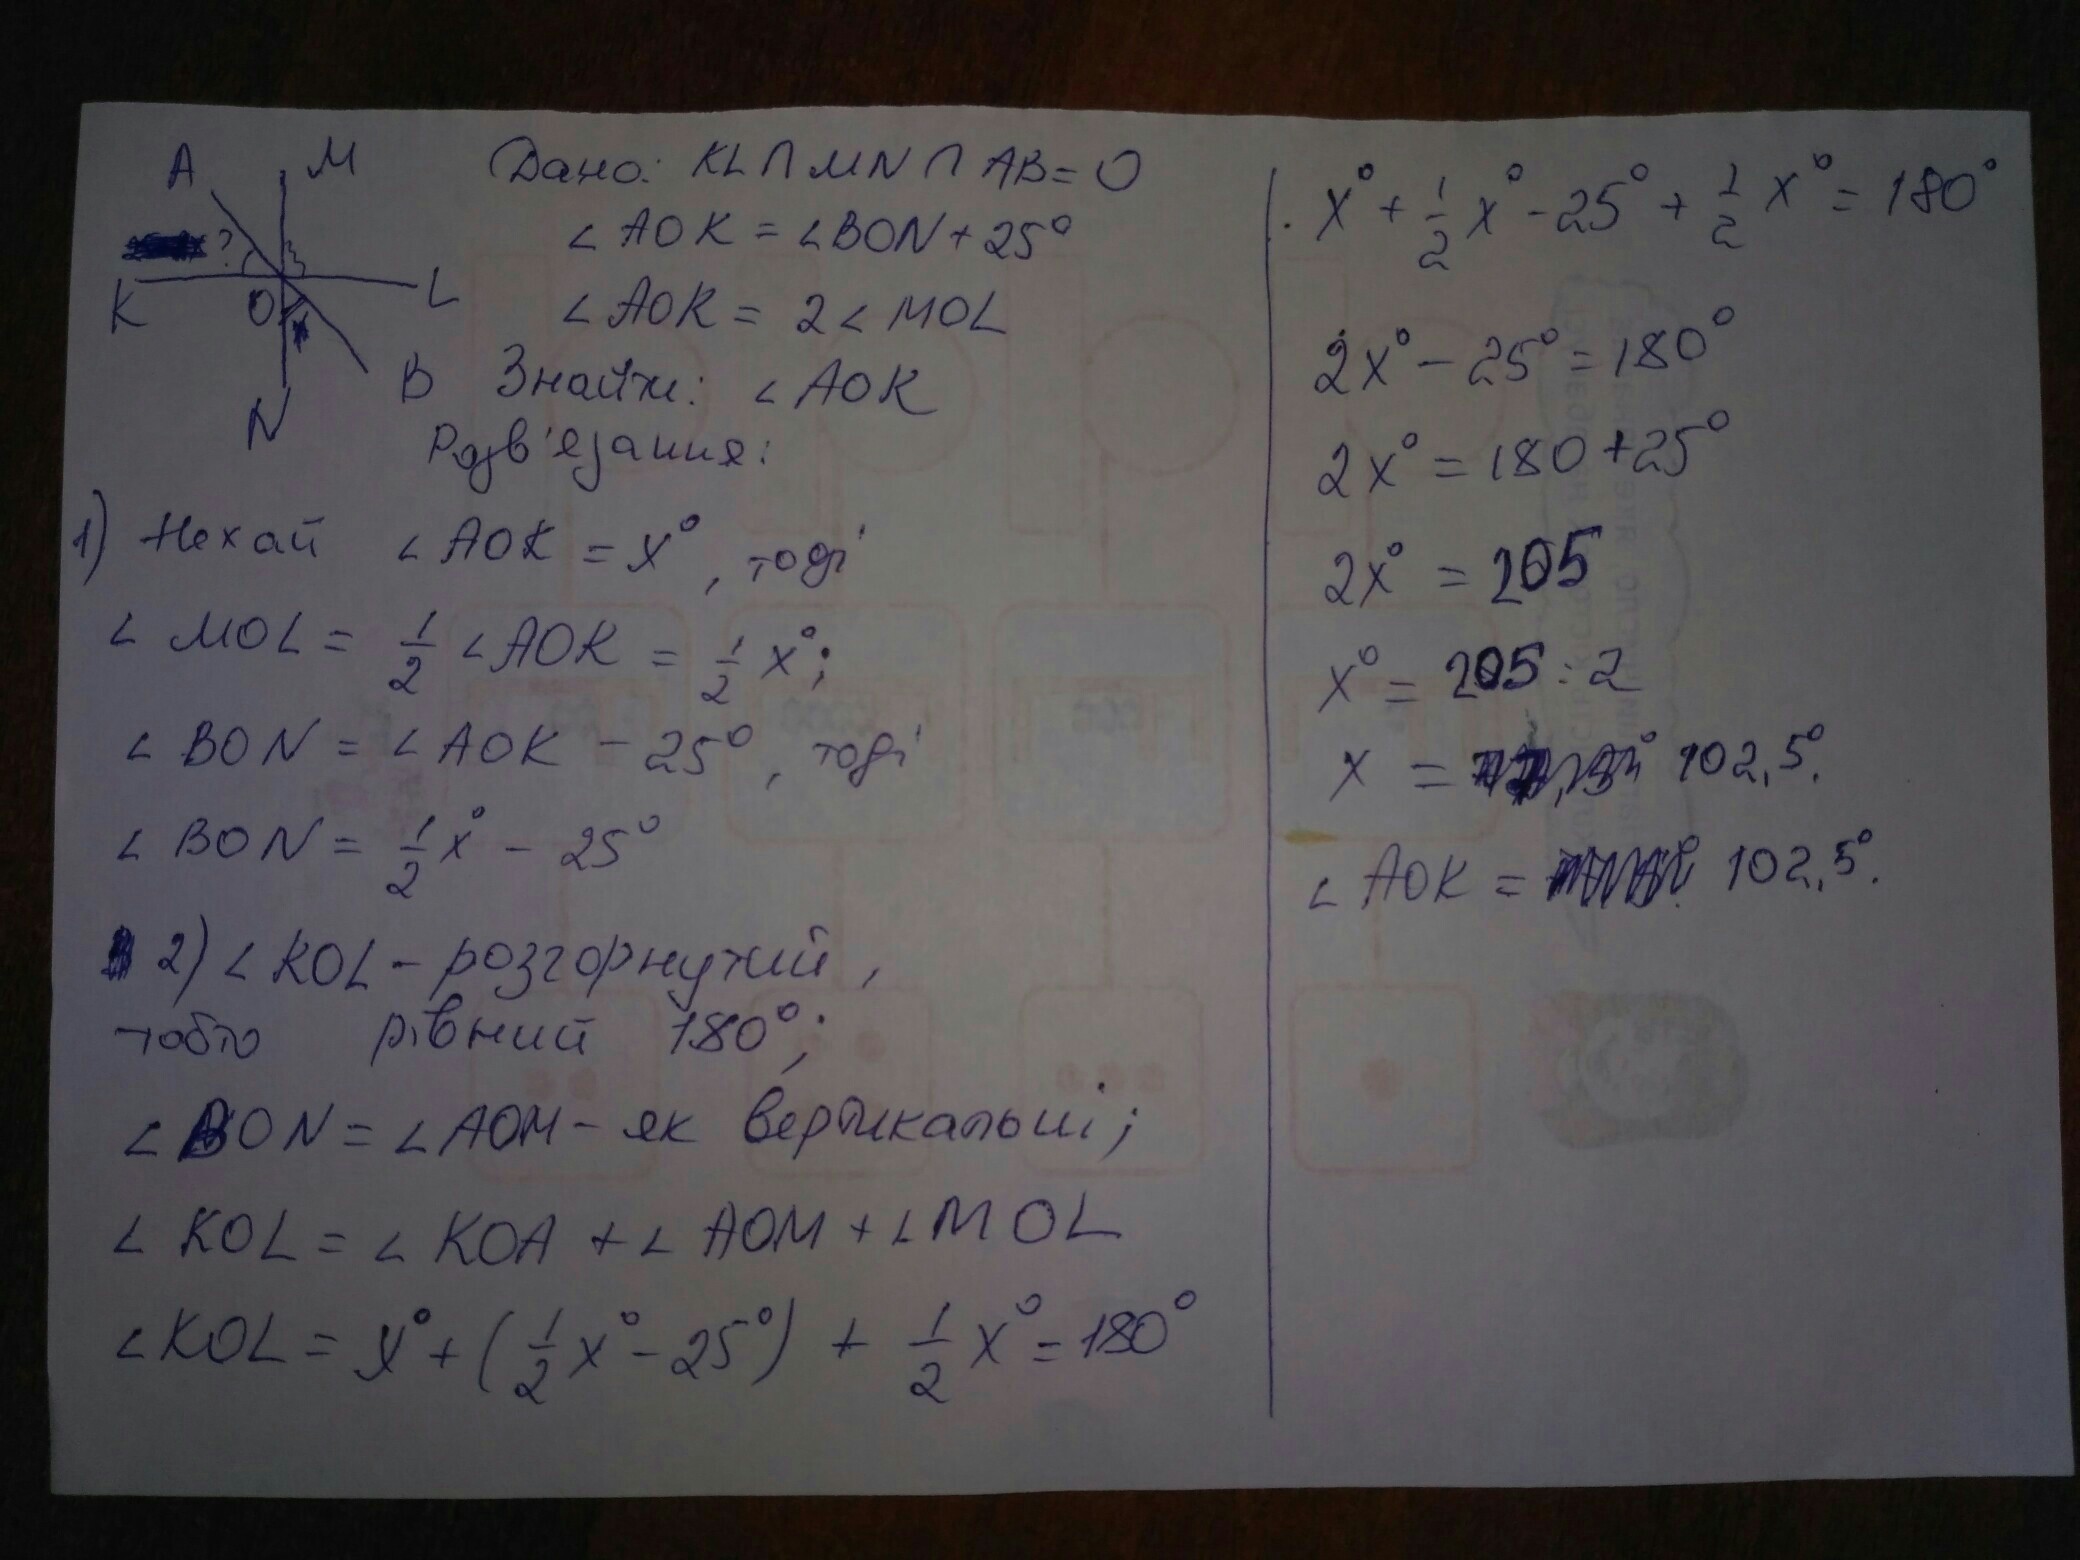 A M
?
K O L
B
N
Дано: KL ∩ MN ∩ AB = O
∠AOK = ∠BON + 25°
∠AOK = 2∠MOL
Знайти: ∠AOK
Розв'язання:
1) Нехай ∠AOK = x°, тоді
∠MOL = 1/2 ∠AOK = 1/2 x°;
∠BON = ∠AOK - 25°, тоді
∠BON = 1/2 x° - 25°
2) ∠KOL - розгорнутий,
тобто рівний 180°;
∠BON = ∠AOM - як вертикальні;
∠KOL = ∠KOA + ∠AOM + ∠MOL
∠KOL = x° + (1/2 x° - 25°) + 1/2 x° = 180°
x° + 1/2 x° - 25° + 1/2 x° = 180°
2x° - 25° = 180°
2x° = 180 + 25°
2x° = 205
x° = 205 : 2
x = 102,5°.
∠AOK = 102,5°.